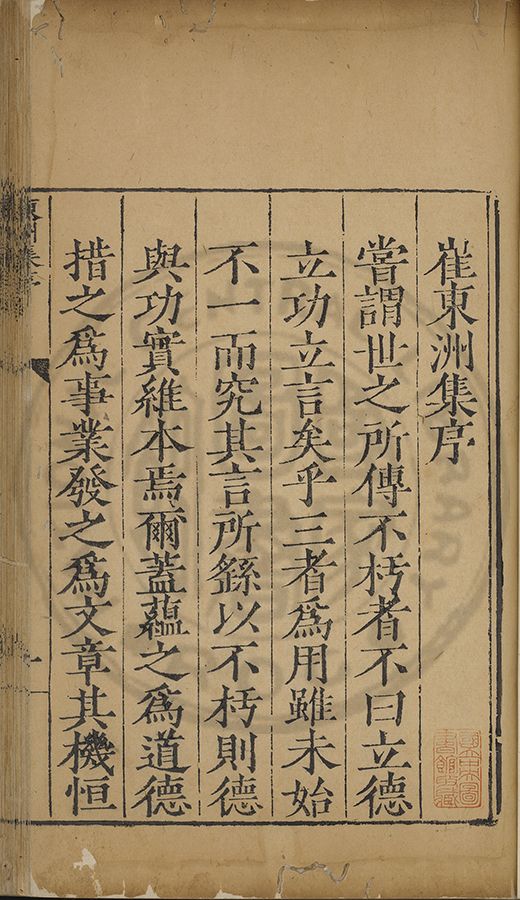 崔東洲集序
嘗謂世之所傳不朽者不曰立德
立功立言矣乎三者爲用雖未始
不一而究其言所繇以不朽則德
與功實維本焉爾蓋蘊之爲道德
措之爲事業發之爲文章其機恒